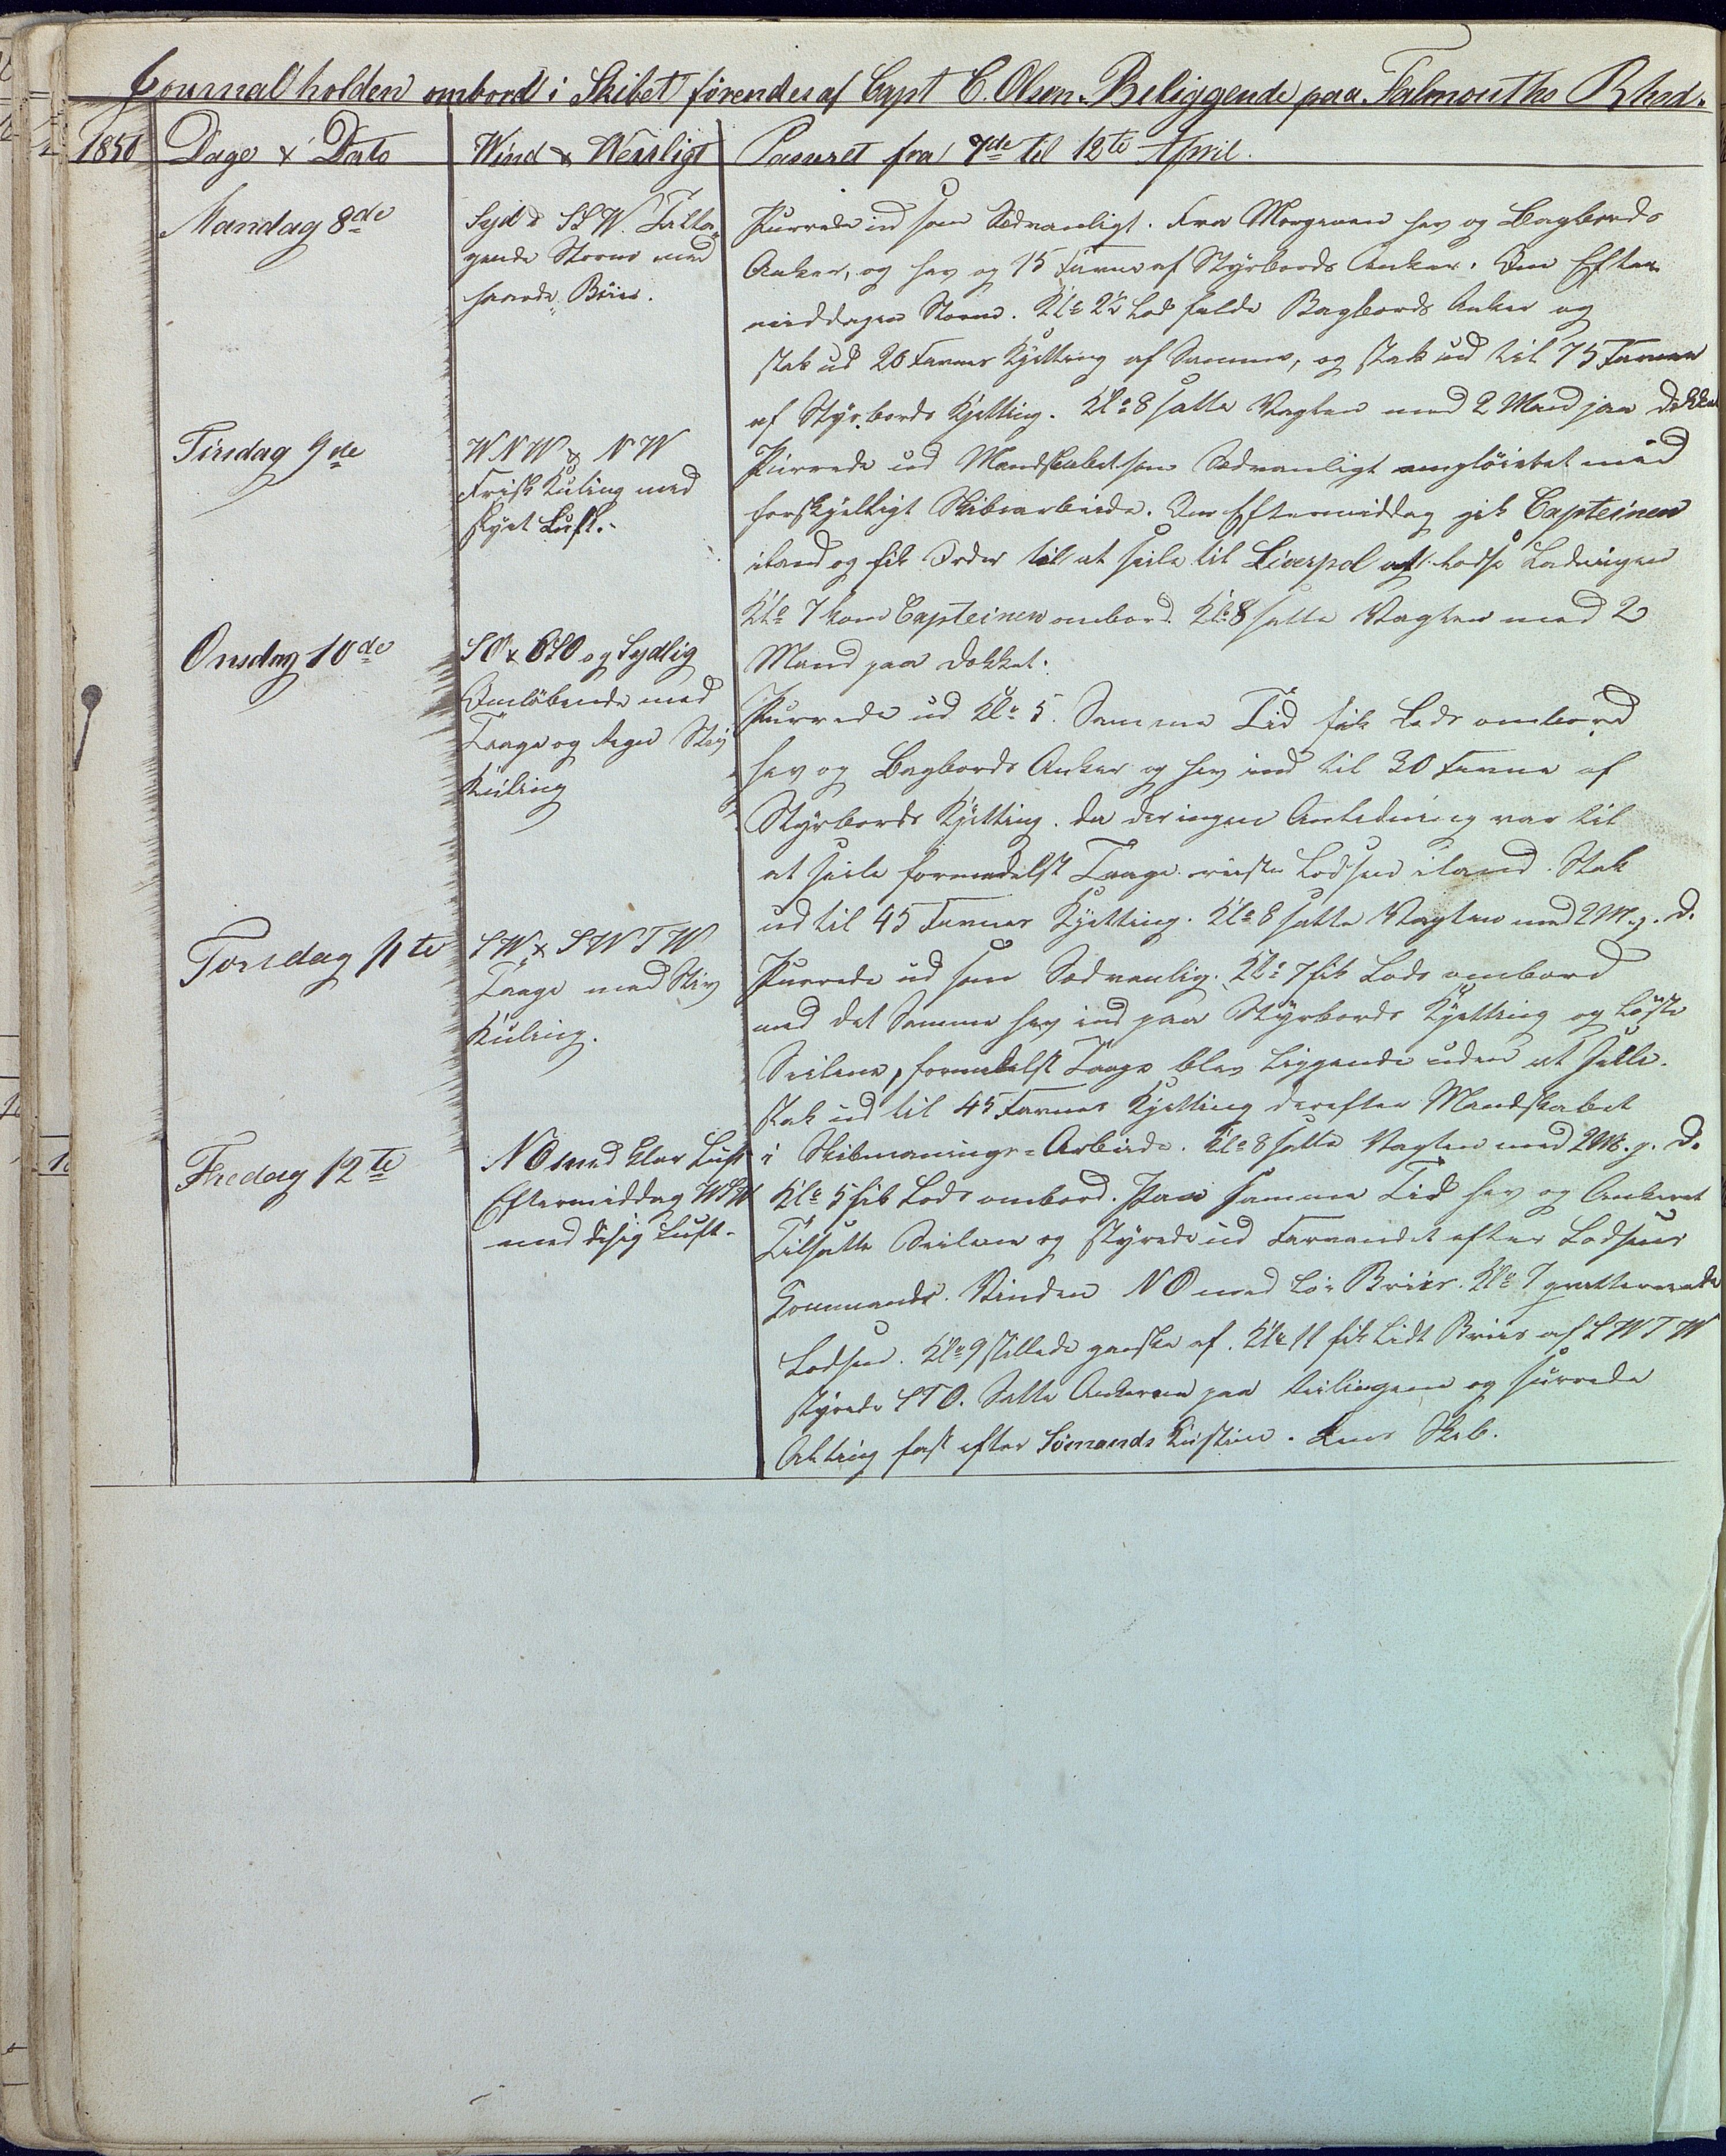 Journal holden ombord i Skibet førendes af Capt C. Olsen. Beliggende paa Falmouths Rhed.
1850 Dage & Dato Wind & Weirligt Passeret fra 7de til 12te April.
Mandag 8de
Syd & SSW. Tilta-
gende Storm med
haarde Bÿier.
Purrede ud som Sædvanligt. Fra Morgenen hev og Bagbords
Anker, og hev og 15 Favne af Stÿrbords Anker. Om Efter
middagen Storm. Klo 2½ Lod falde Bagbords Anker og
stak ud 20 Favnes Kjetting af Samme, og stak ud til 75 Favne
af Stÿrbords Kjetting. Klo 8 satte Vagten med 2 Mand paa Dækket
Tirsdag 9de
WNW & NW
Frisk Kuling med
skÿet Luft.
Purrede ud Mandskabet som Sædvanligt med
forskjelligt Skibsarbeide. Om Eftermiddag gik Capteinen
iland og fik Order til at seile til Liverpol at losse Ladningen
Klo 7 kom Capteinen ombord. Klo 8 satte Vagten med 2
Mand paa Dækket.
Onsdag 10de
SO & OSO og Sydlig
Omløbende med
Taage og Regn Stiv
Kuling
Purrede ud Klo 5. Samme Tid fik Lods ombord
hev og Bagbords Anker og hev ind til 30 Favne af
Stÿrbords Kjetting. da der ingen Anledning var til
at seile formedelst Taage reiste Lodsen iland. Stak
ud til 45 Favnes Kjetting. Klo 8 satte Vagten med 2 M. p. D.
Torsdag 11te
SW & SWTW
Taage med Stiv
Kuling.
Purrede ud som Sædvanlig. Klo 7 fik Lods ombord
med det Samme hev ind paa Stÿrbords Kjetting og løste
Seilene, formedelst Taage blev liggende uden at seile.
stak ud til 45 Favnes Kjetting derefter Mandskabet
i Arbeide. Klo 8 satte Vagten med 2 M. p. D.
Fredag 12te
NO med klar Luft
Eftermiddag WSW
med disig Luft.
Klo 5 fik Lods ombord. Paa samme Tid hev og Ankeret
Tilsatte Seilene og stÿrede ud Farvandet efter Lodsens
Commando. Vinden NO med Lÿ Briis. Klo 7 qvitterede
Lodsen. Klo 9 stillede ganske af. Klo 11 fik lidt Briis af SWTW
stÿrede STO. Satte Ankerne paa og surrede
Alting fast efter Sømands . Lens Skib.